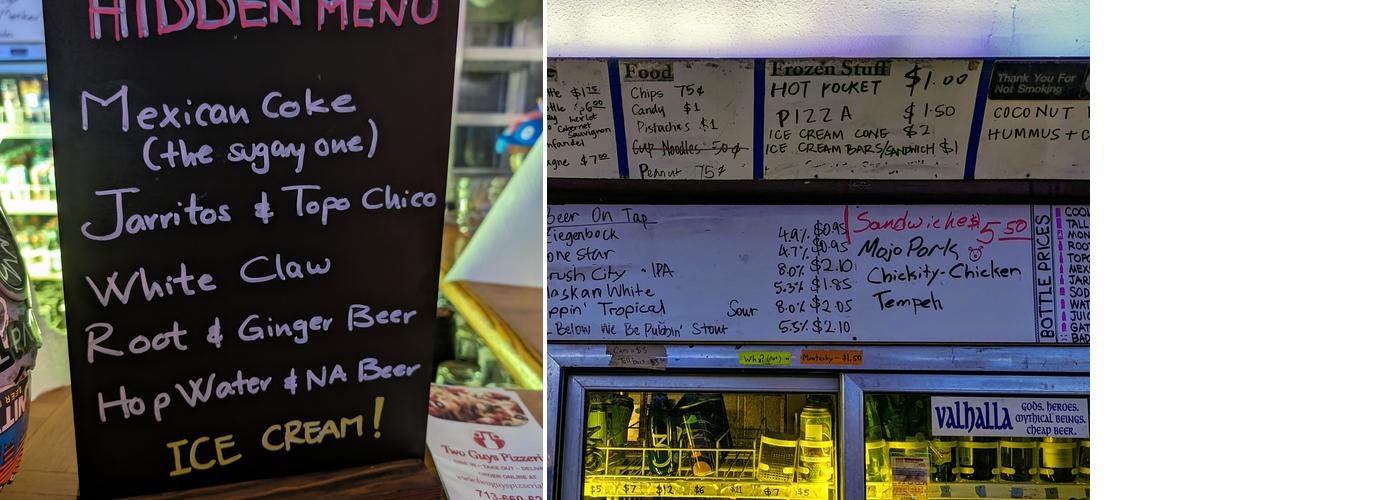 HIDDEN MENU
Mexican Coke
(the sugary one)
Jarritos & Topo Chico
White Claw
Root & Ginger Beer
Hop Water & NA Beer
ICE CREAM!
Two Guys Pizzeri
DINE IN - TAKE OUT - DELIVE
ORDER ONLINE AT
713-660-
$1.75
$6.00
Merlot
Cabernet
Sauvignon
nfandel
agne $7.00
Food
Chips 75¢
Candy $1
Pistachios $1
Cup Noodles 50¢
Peanut 75¢
Frozen Stuff $1.00
HOT POCKET
PIZZA $1.50
ICE CREAM CONE $2
ICE CREAM BARS/SANDWICH $1
Thank You For
Not Smoking
COCONUT
HUMMUS + C
Beer On Tap
Ziegenbock 4.9% $0.95
one Star 4.7% $0.95
rush City - IPA 8.0% $2.10
laskan White 5.3% $1.85
ppin' Tropical Sour 8.0% $2.05
Below We Be Pubbin' Stout 5.5% $2.10
Sandwiches $5.50
Mojo Pork
Chickity-Chicken
Tempeh
BOTTLE PRICES
COOL
TALL
MON
ROOT
TOPO
MEX
JAR
SOD
WAT
JUIC
GAT
BAD
Montucky - $1.50
valhalla
GODS. HEROES.
MYTHICAL BEINGS.
CHEAP BEER.
$5 $7 $12 $6 $11 $7 $5